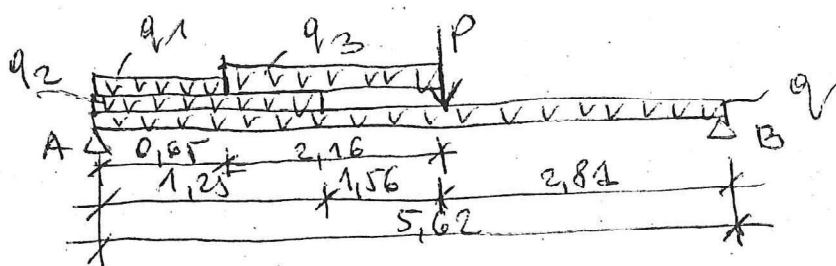 q1 q3 P
q2 q
A B
0,65 2,16
1,25 1,56 2,81
5,62